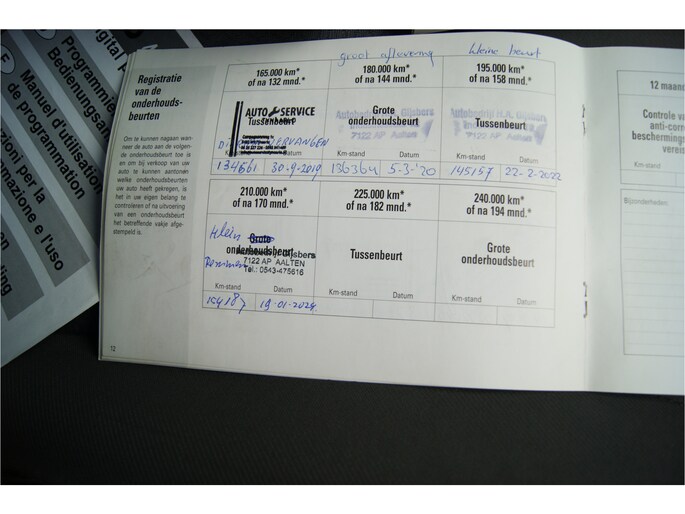 Registratie
van de
onderhouds-
beurten
Om te kunnen nagaan wan-
neer de auto aan de volgen-
de onderhoudsbeurt toe is
en om bij verkoop van uw
auto te kunnen aantonen
welke onderhoudsbeurten
uw auto heeft gekregen, is
het in uw eigen belang te
controleren of na uitvoering
van een onderhoudsbeurt
het betreffende vakje afge-
stempeld is.
groot aflevering
kleine beurt
165.000 km*
of na 132 mnd.*
180.000 km*
of na 144 mnd.*
195.000 km*
of na 158 mnd.*
AUTO SERVICE
Tussenbeurt
Grote
onderhoudsbeurt
7122 AP Aalten
Tussenbeurt
7122 AP Aalten
VERVANGEN
Datum
Km-stand
Datum
Km-stand
Datum
134561
30-9-2019
136364
5-3-'20
145157
22-2-2022
210.000 km*
of na 170 mnd.*
225.000 km*
of na 182 mnd.*
240.000 km*
of na 194 mnd.*
Klein
Grote
onderhoudsbeurt
7122 AP AALTEN
Tel.: 0543-475616
Remmen
Tussenbeurt
Grote
onderhoudsbeurt
Km-stand
Datum
Km-stand
Datum
Km-stand
Datum
154187
19-01-2024
12
12 maand
Controle v
anti-corr
beschermings
vereis
Km-stand
Bijzonderheden:
Manuel d'utilisation
de programmation